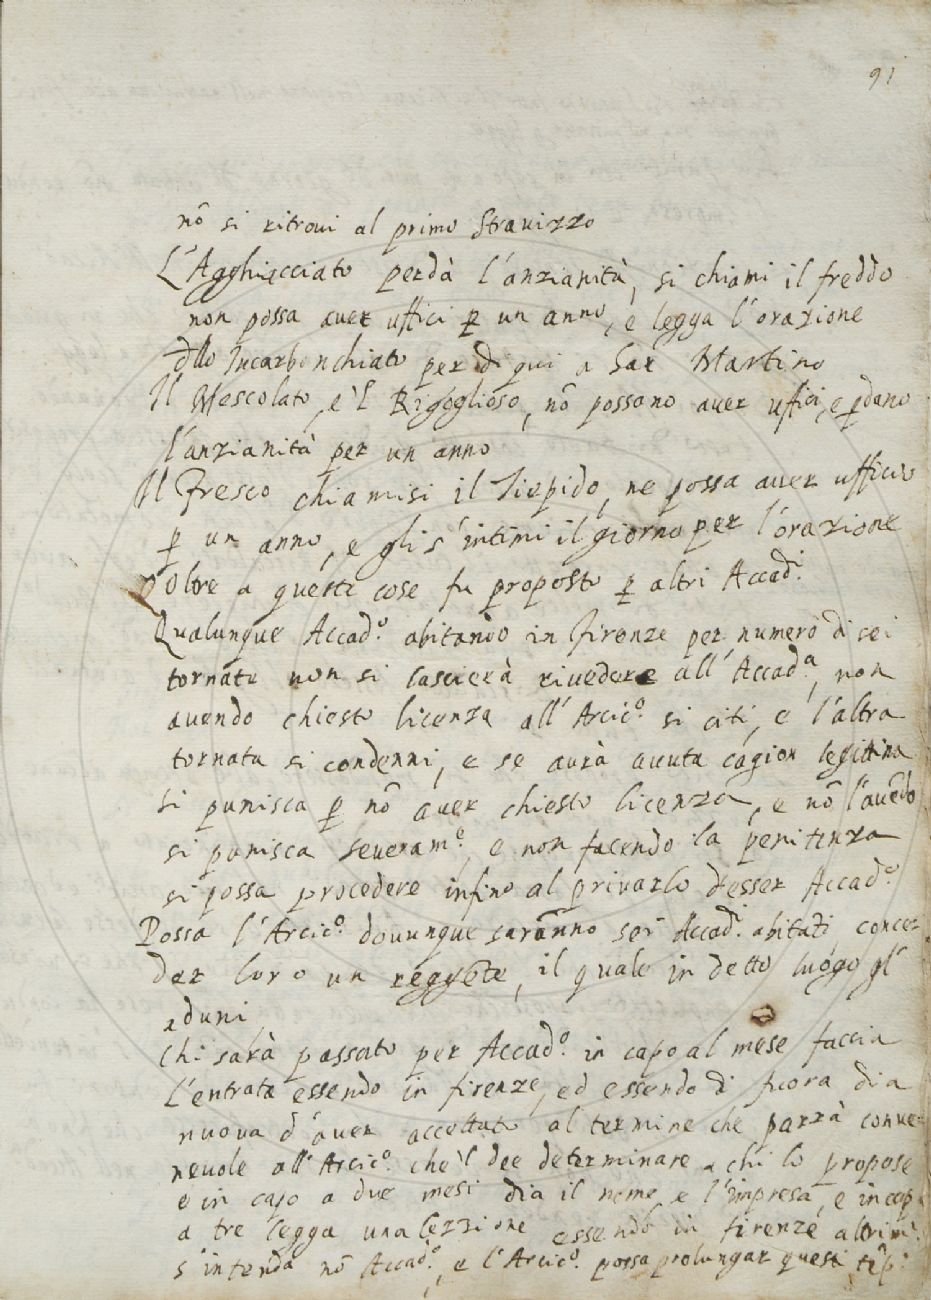 91
nō si ritroui al primo Strauizzo
L'Agghiacciato perda l'anzianità, si chiami il freddo
non possa auer uffici p un anno, e legga l'orazione
dllo Incarbonchiato per di qui a San Martino
Il Mescolato, e'l Rigoglioso, nō possano auer uffici, e pdano
l'anzianità per un anno
Il Fresco chiamisi il Tiepido, ne possa auer ufficio
p un anno, e gli s'intimi il giorno per l'orazione
Oltre a queste cose fu proposto p altri Accad.i
Qualunque Accad.o abitando in Firenze per numero di sei
tornate non si lascierà riuedere all'Accad.a, non
auendo chiesto licenza all'Arcic.o si citi, e l'altra
tornata si condenni, e se aurà auuta cagion legittima
si punisca p nō auer chiesto licenza, e nō l'auēdo
si punisca seueram.o, e non facendo la penitenza
si possa procedere infino al priuarlo d'esser Accad.o
Possa l'Arcic.o douunque saranno sei Accad.i abitāti conce-
der loro un reggēte, il quale in detto luogo gl'
aduni
Chi sarà passato per Accad.o in capo al mese faccia
l'entrata essendo in firenze, ed essendo di fuora dia
nuoua d'auer accettato al termine che parrà conue-
neuole all'Arcic.o che'l dee determinare a chi lo propose
e in capo a due mesi dia il nome, e l'impresa, e in capo
a tre legga una lezzione essendo in firenze altrim.i
s'intenda nō Accad.o, e l'Arcic.o possa prolungar questi